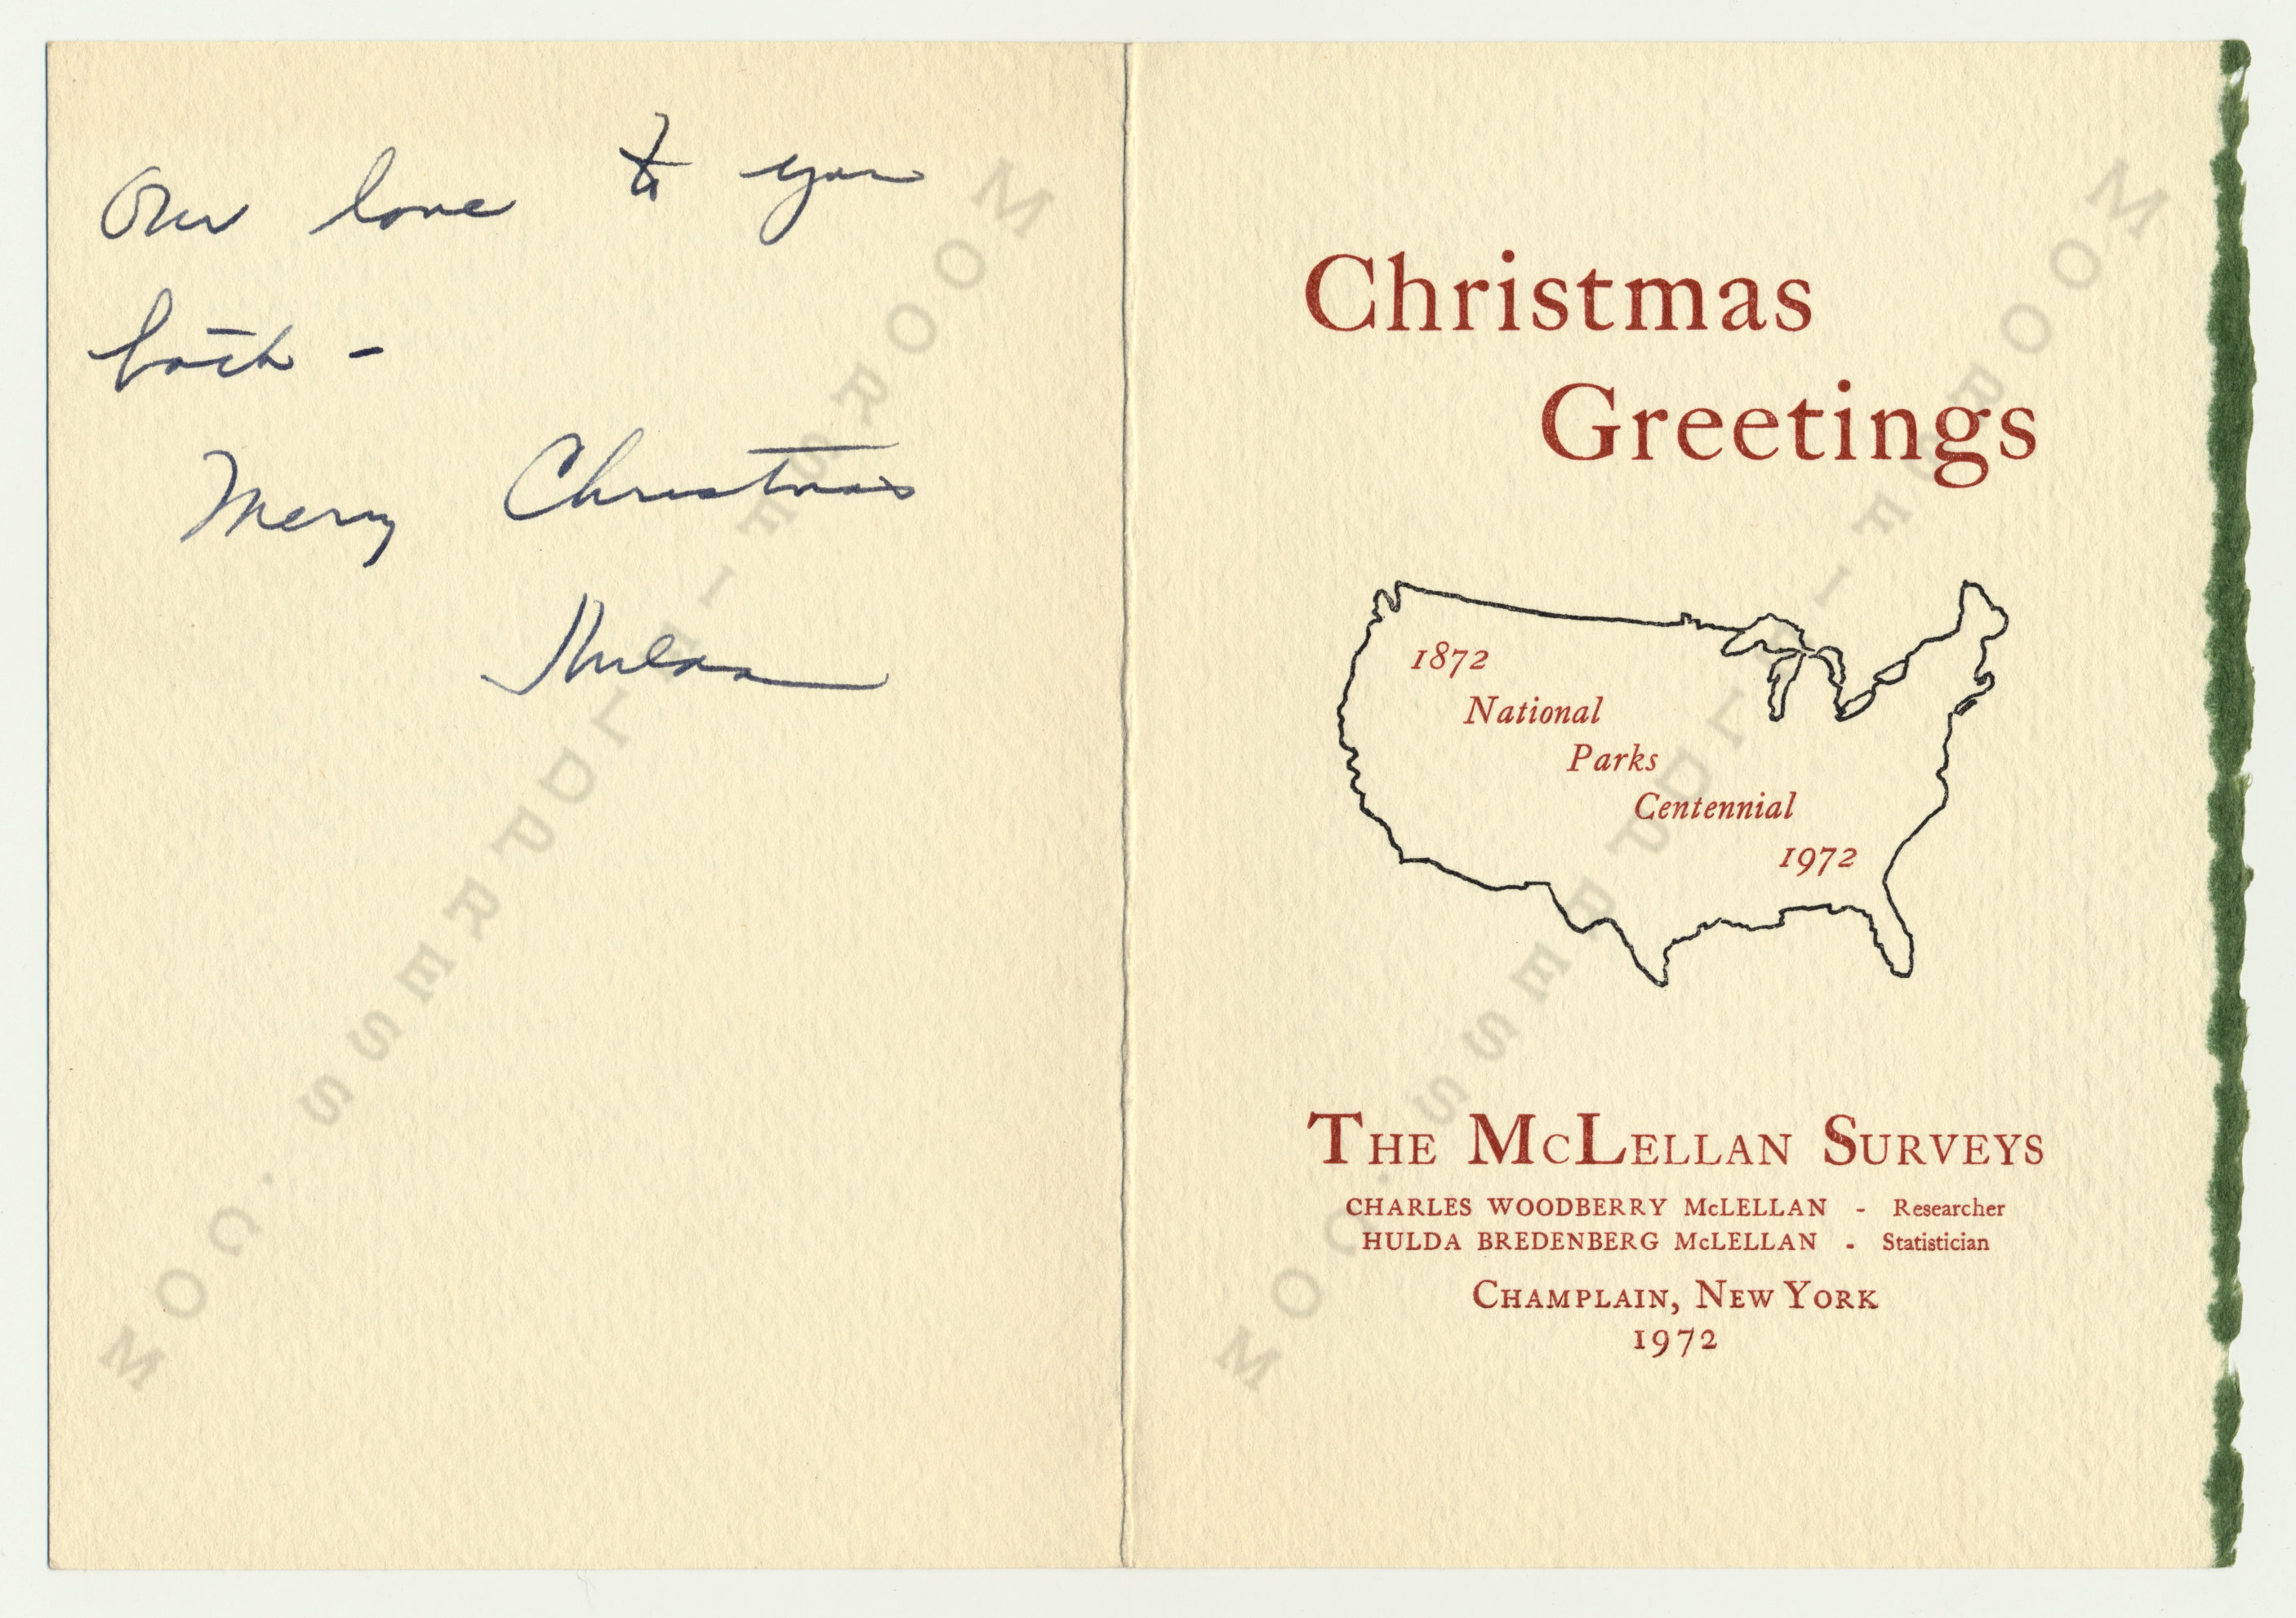 Our love to you
both -
Merry Christmas
Hulda
Christmas
Greetings
1872
National
Parks
Centennial
1972
THE MCLELLAN SURVEYS
CHARLES WOODBERRY McLELLAN - Researcher
HULDA BREDENBERG McLELLAN - Statistician
CHAMPLAIN, NEW YORK
1972
MOORSFIELDPRESS.COM
MOORSFIELDPRESS.COM